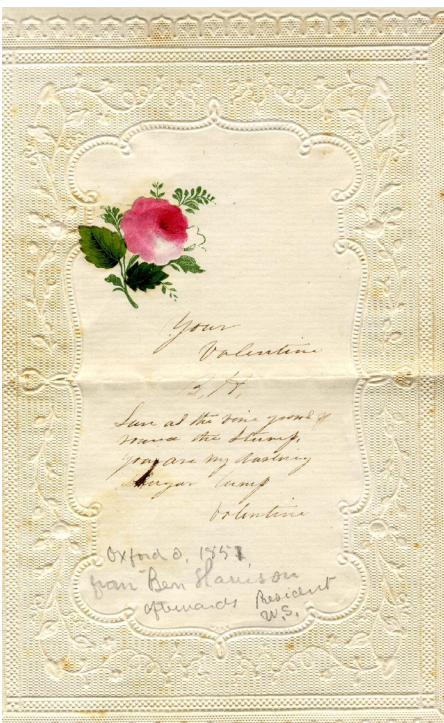 Your
Valentine
B, H,
Sure as the vine grows
round the stump,
you are my darling
Sugar lump
Valentine
Oxford O, 1851
from Ben Harrison
afterwards President
U.S.